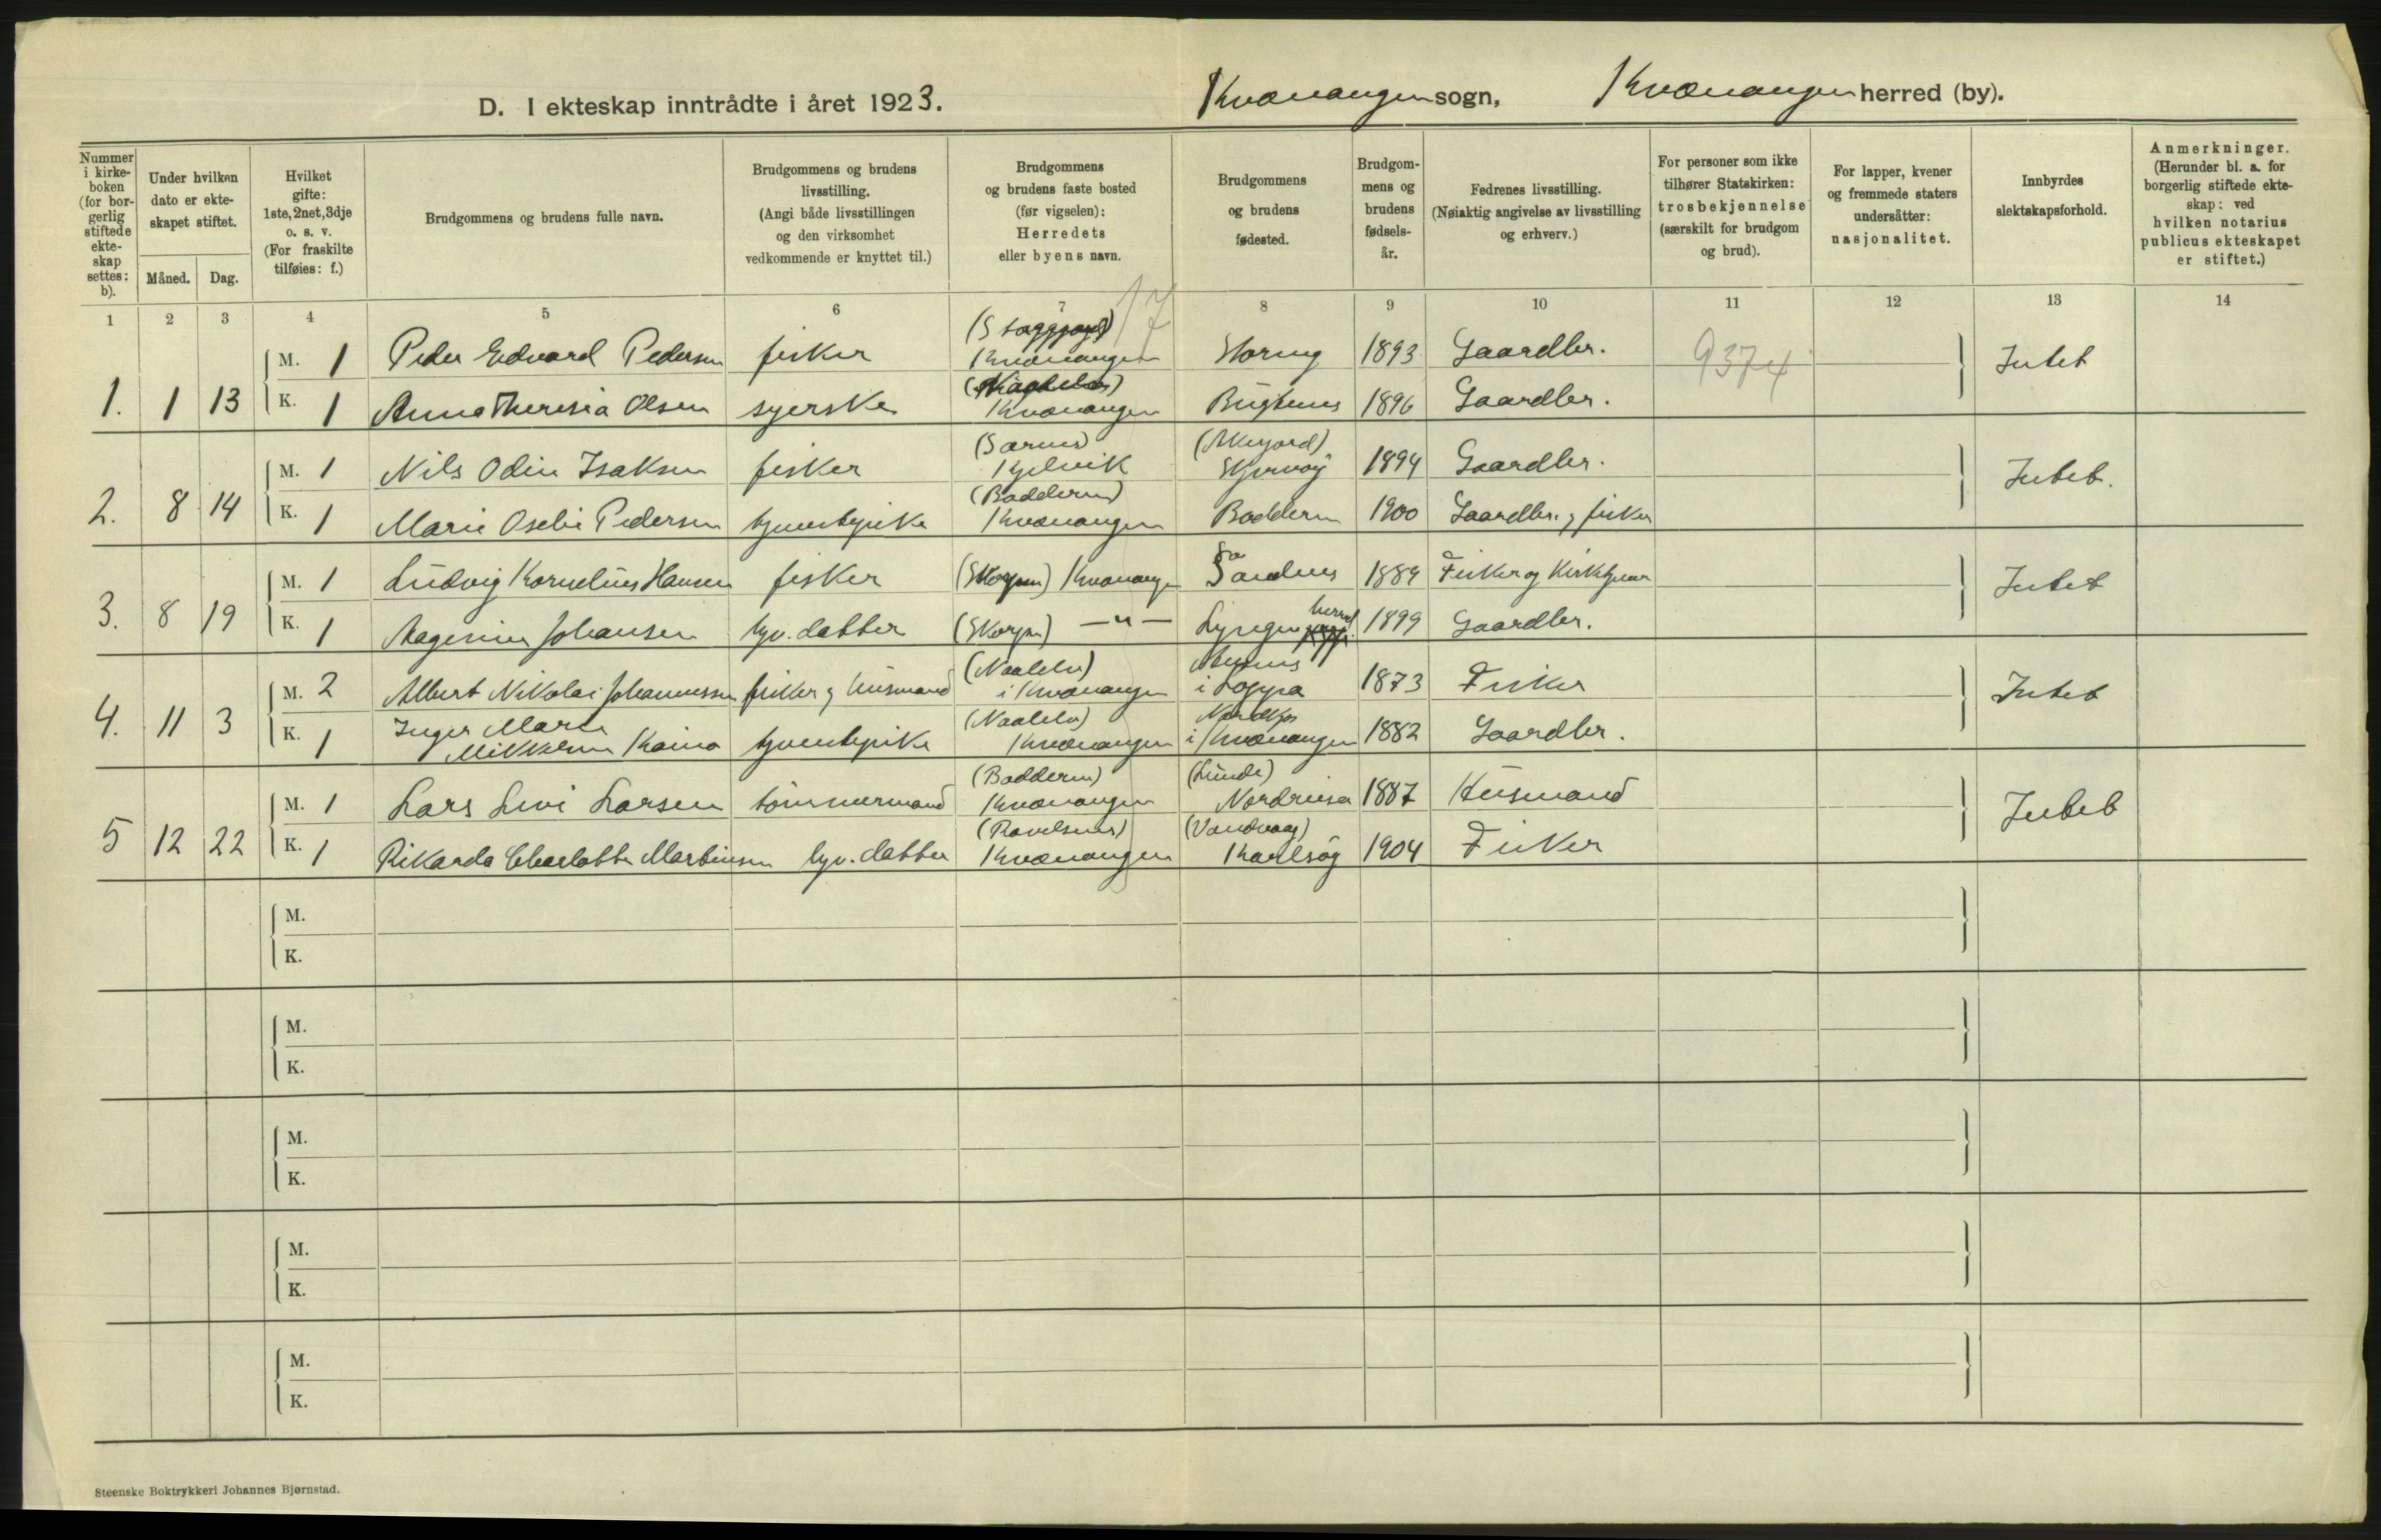 D. I ekteskap inntrådte i året 1923. Kvænangen sogn, Kvænangen herred (by).
Nummer i kirkeboken (for borgerlig stiftede ekteskap settes: b).
Under hvilken dato er ekteskapet stiftet.
Måned. Dag.
Hvilket gifte: 1ste, 2net, 3dje o. s. v. (For fraskilte tilføies: f.)
Brudgommens og brudens fulle navn.
Brudgommens og brudens livsstilling. (Angi både livsstillingen og den virksomhet vedkommende er knyttet til.)
Brudgommens og brudens faste bosted (før vigselen): Herredets eller byens navn.
Brudgommens og brudens fødested.
Brudgommens og brudens fødselsår.
Fedrenes livsstilling. (Nøiaktig angivelse av livsstilling og erhverv.)
For personer som ikke tilhører Statskirken: trosbekjennelse (særskilt for brudgom og brud).
For lapper, kvener og fremmede staters undersåtter: nasjonalitet.
Innbyrdes slektskapsforhold.
Anmerkninger. (Herunder bl. a. for borgerlig stiftede ekteskap: ved hvilken notarius publicus ekteskapet er stiftet.)
1 2 3 4 5 6 7 8 9 10 11 12 13 14
17
1. 1 13 M. 1 Peder Edvard Pedersen fisker Kvænangen 1893 Gaardbr. 9374 Intet
K. 1 Anna Theresia Olsen syerske Kvænangen 1896 Gaardbr.
2. 8 14 M. 1 Nils Odin Isaksen fisker Kjelvik Skjervøy 1894 Gaardbr. Intet.
K. 1 Marie Oselie Pedersen tjenestepike (Badderen) Kvænangen Badderen 1900 Gaardbr. og fisker
3. 8 19 M. 1 Ludvig Kornelius Hansen fisker (Skorpen) Kvænangen 1889 Fisker og Kirketjener Intet
K. 1 Johansen hjv. datter (Skorpen) —"— Lyngen herred 1899 Gaardbr.
4. 11 3 M. 2 Albert Nikolai Johannessen fisker og husmand i Kvænangen i Loppa 1873 Fisker Intet
K. 1 Inger Marie Mikkelsen Kaino tjenestepike Kvænangen i Kvænangen 1882 Gaardbr.
5 12 22 M. 1 Lars Levi Larsen tømmermand (Badderen) Kvænangen (Lunde) Nordreisa 1887 Husmand Intet
K. 1 Rikarda Charlotte Martinsen hjv. datter Kvænangen (Vandvaag) Karlsøy 1904 Fisker
M.
K.
M.
K.
M.
K.
M.
K.
M.
K.
Steenske Boktrykkeri Johannes Bjørnstad.